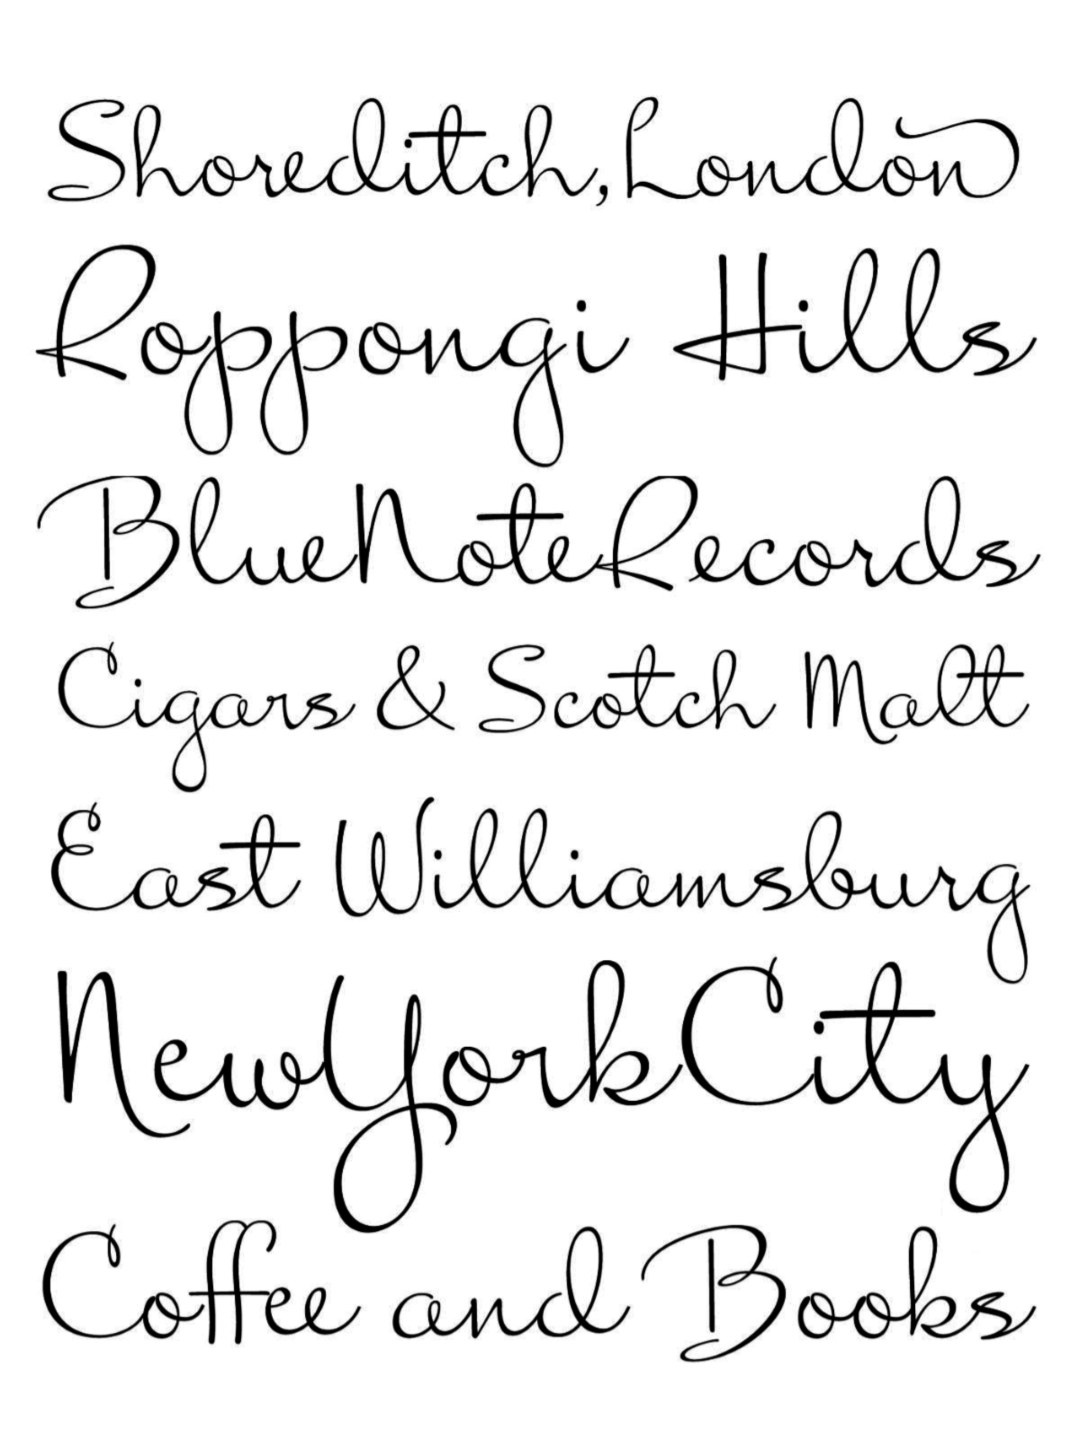 Shoreditch, London
Roppongi Hills
BlueNoteRecords
Cigars & Scotch Malt
East Williamsburg
NewYorkCity
Coffee and Books